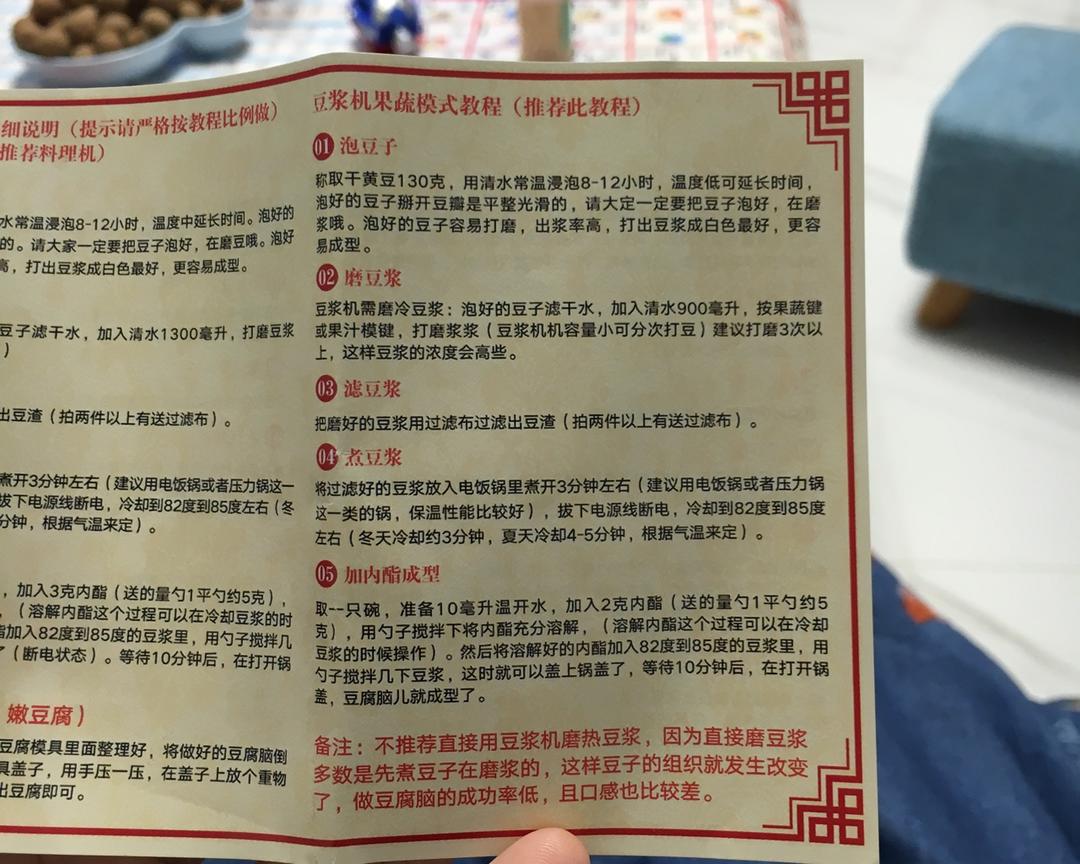 细说明（提示请严格按教程比例做）
推荐料理机）
水常温浸泡8-12小时，温度中延长时间。泡好的
的。请大家一定要把豆子泡好，在磨豆哦。泡好
高，打出豆浆成白色最好，更容易成型。
豆子滤干水，加入清水1300毫升，打磨豆浆
）
出豆渣（拍两件以上有送过滤布）。
煮开3分钟左右（建议用电饭锅或者压力锅这一
拔下电源线断电，冷却到82度到85度左右（冬
分钟，根据气温来定）。
，加入3克内酯（送的量勺1平勺约5克），
，（溶解内酯这个过程可以在冷却豆浆的时
酯加入82度到85度的豆浆里，用勺子搅拌几
了（断电状态）。等待10分钟后，在打开锅
嫩豆腐）
豆腐模具里面整理好，将做好的豆腐脑倒
具盖子，用手压一压，在盖子上放个重物
出豆腐即可。
豆浆机果蔬模式教程（推荐此教程）
01 泡豆子
称取干黄豆130克，用清水常温浸泡8-12小时，温度低可延长时间，
泡好的豆子掰开豆瓣是平整光滑的，请大定一定要把豆子泡好，在磨
浆哦。泡好的豆子容易打磨，出浆率高，打出豆浆成白色最好，更容
易成型。
02 磨豆浆
豆浆机需磨冷豆浆：泡好的豆子滤干水，加入清水900毫升，按果蔬键
或果汁模键，打磨浆浆（豆浆机机容量小可分次打豆）建议打磨3次以
上，这样豆浆的浓度会高些。
03 滤豆浆
把磨好的豆浆用过滤布过滤出豆渣（拍两件以上有送过滤布）。
04 煮豆浆
将过滤好的豆浆放入电饭锅里煮开3分钟左右（建议用电饭锅或者压力锅
这一类的锅，保温性能比较好），拔下电源线断电，冷却到82度到85度
左右（冬天冷却约3分钟，夏天冷却4-5分钟，根据气温来定）。
05 加内酯成型
取--只碗，准备10毫升温开水，加入2克内酯（送的量勺1平勺约5
克），用勺子搅拌下将内酯充分溶解，（溶解内酯这个过程可以在冷却
豆浆的时候操作）。然后将溶解好的内酯加入82度到85度的豆浆里，用
勺子搅拌几下豆浆，这时就可以盖上锅盖了，等待10分钟后，在打开锅
盖，豆腐脑儿就成型了。
备注：不推荐直接用豆浆机磨热豆浆，因为直接磨豆浆
多数是先煮豆子在磨浆的，这样豆子的组织就发生改变
了，做豆腐脑的成功率低，且口感也比较差。